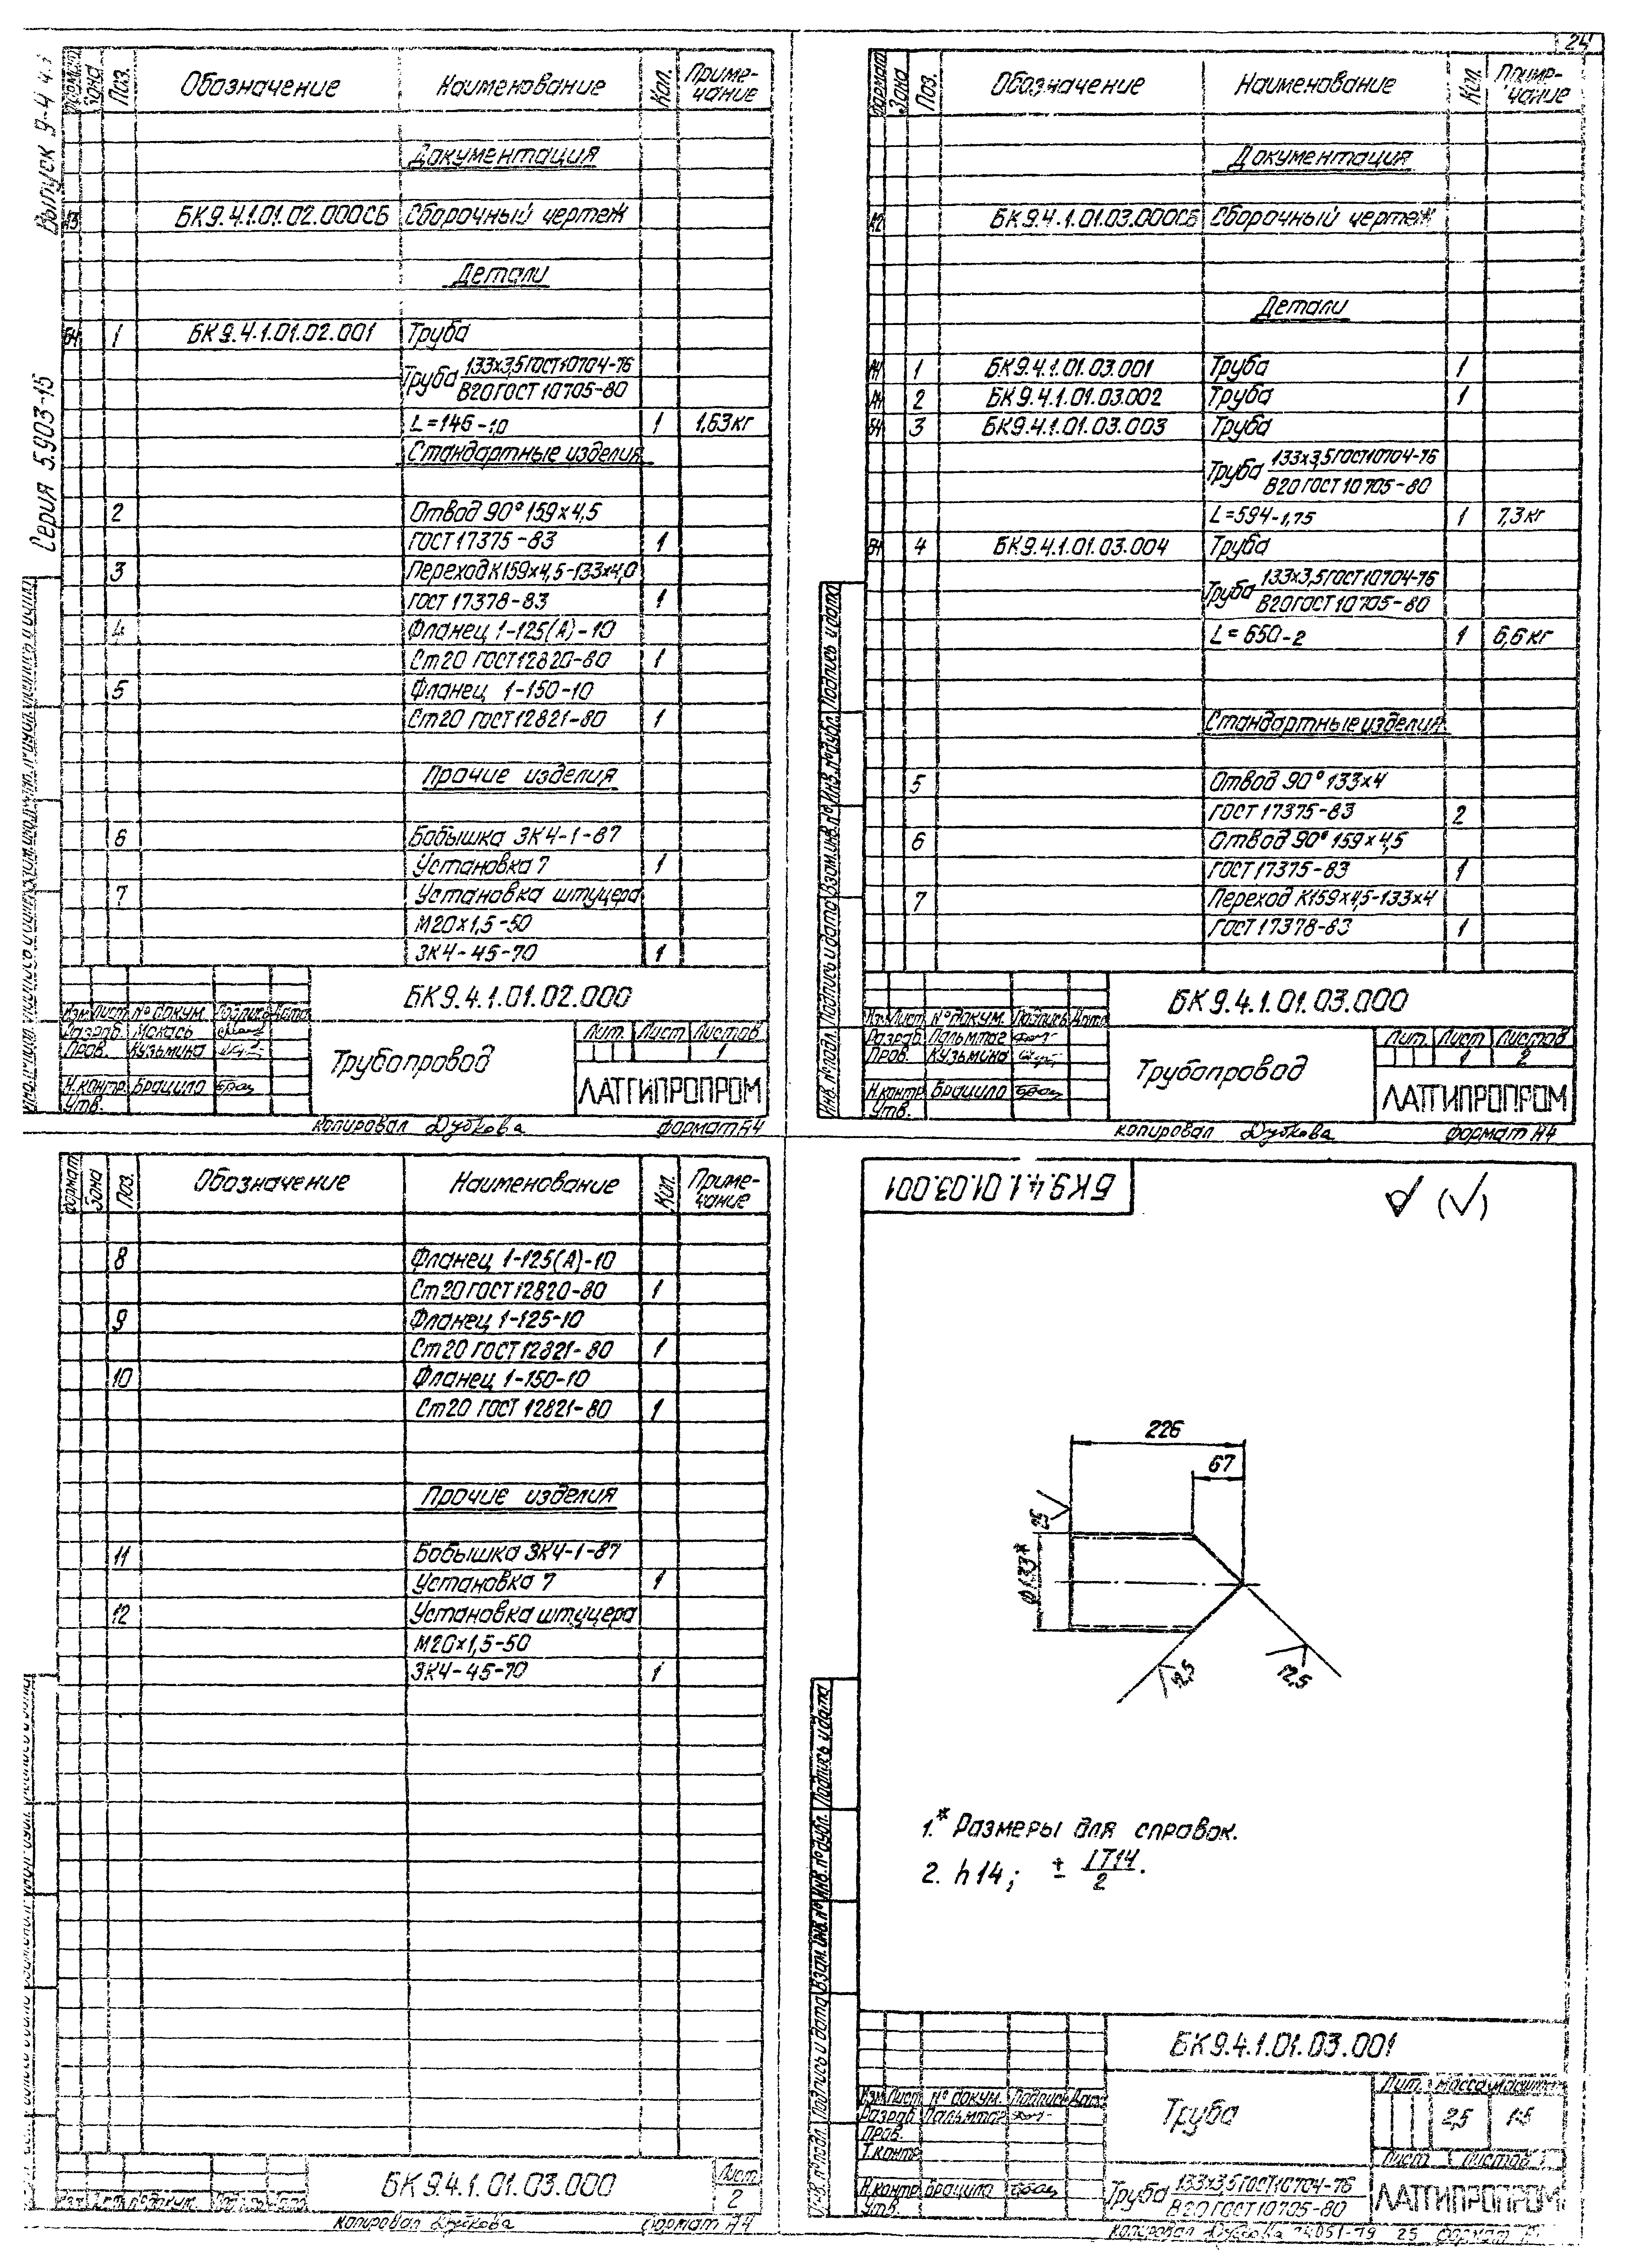 24
Выпуск 9-4 ч.1
Серия 5.903-15
Формат Зона Поз. Обозначение Наименование Кол. Примечание
Документация
А3 БК9.4.1.01.02.000СБ Сборочный чертеж
Детали
БЧ 1 БК9.4.1.01.02.001 Труба
Труба 133х3,5 ГОСТ 10704-76
В20 ГОСТ 10705-80
L=146-1,0 1 1,63кг
Стандартные изделия
2 Отвод 90° 159х4,5
ГОСТ 17375-83 1
3 Переход К159х4,5-133х4,0
ГОСТ 17378-83 1
4 Фланец 1-125(А)-10
Ст20 ГОСТ 12820-80 1
5 Фланец 1-150-10
Ст20 ГОСТ 12821-80 1
Прочие изделия
6 Бобышка ЗК4-1-87
Установка 7 1
7 Установка штуцера
М20х1,5-50
ЗК4-45-70 1
БК9.4.1.01.02.000
Изм. Лист № докум. Подпись Дата
Разраб. Мокась
Пров. Кузьмина
Н.контр. Брацило
Утв.
Трубопровод
Лит. Лист Листов
1
ЛАТГИПРОПРОМ
Копировал Дубкова Формат А4
Формат Зона Поз. Обозначение Наименование Кол. Примечание
Документация
А2 БК9.4.1.01.03.000СБ Сборочный чертеж
Детали
А4 1 БК9.4.1.01.03.001 Труба 1
А4 2 БК9.4.1.01.03.002 Труба 1
БЧ 3 БК9.4.1.01.03.003 Труба
Труба 133х3,5 ГОСТ 10704-76
В20 ГОСТ 10705-80
L=594-1,75 1 7,3кг
БЧ 4 БК9.4.1.01.03.004 Труба
Труба 133х3,5 ГОСТ 10704-76
В20 ГОСТ 10705-80
L=650-2 1 6,6кг
Стандартные изделия
5 Отвод 90° 133х4
ГОСТ 17375-83 2
6 Отвод 90° 159х4,5
ГОСТ 17375-83 1
7 Переход К159х4,5-133х4
ГОСТ 17378-83 1
Инв. № подл. Подпись и дата Взам. инв. № Инв. № дубл. Подпись и дата
БК9.4.1.01.03.000
Изм. Лист № докум. Подпись Дата
Разраб. Пальмтаг
Пров. Кузьмина
Н.контр. Брацило
Утв.
Трубопровод
Лит. Лист Листов
1 2
ЛАТГИПРОПРОМ
Копировал Дубкова Формат А4
Формат Зона Поз. Обозначение Наименование Кол. Примечание
8 Фланец 1-125(А)-10
Ст20 ГОСТ 12820-80 1
9 Фланец 1-125-10
Ст20 ГОСТ 12821-80 1
10 Фланец 1-150-10
Ст20 ГОСТ 12821-80 1
Прочие изделия
11 Бобышка ЗК4-1-87
Установка 7 1
12 Установка штуцера
М20х1,5-50
ЗК4-45-70 1
БК9.4.1.01.03.000
Лист
2
Изм. Лист № докум. Подпись Дата
Копировал Дубкова Формат А4
БК9.4.1.01.03.001
(√)
226
67
25
Ø133*
12,5
12,5
1.* Размеры для справок.
2. h14; ± IT14/2.
Инв. № подл. Подпись и дата Взам. инв. № Инв. № дубл. Подпись и дата
БК9.4.1.01.03.001
Изм. Лист № докум. Подпись Дата
Разраб. Пальмтаг
Пров.
Т.контр.
Н.контр. Брацило
Утв.
Труба
Лит. Масса Масштаб
2,5 1:5
Лист Листов 1
Труба 133х3,5 ГОСТ 10704-76
В20 ГОСТ 10705-80
ЛАТГИПРОПРОМ
Копировал Дубкова 24051-19 25 Формат